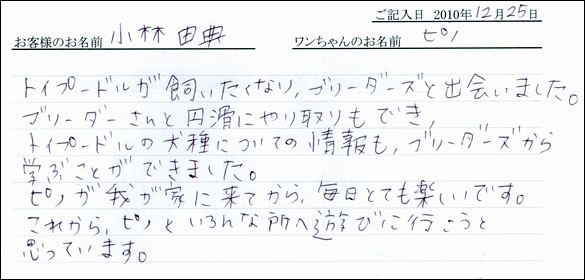 ご記入日 2010年12月25日
お客様のお名前 小林由典 ワンちゃんのお名前 ピノ
トイプードルが飼いたくなり,ブリーダーズと出会いました。
ブリーダーさんと円滑にやり取りもでき,
トイプードルの犬種についての情報も,ブリーダーズから
学ぶことができました。
ピノが我が家に来てから,毎日とても楽しいです。
これから,ピノといろんな所へ遊びに行こうと
思っています。